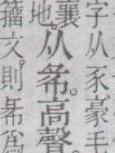 字从豕豪毛
襄
地。
从㣇。高聲
籒文。則㣇爲